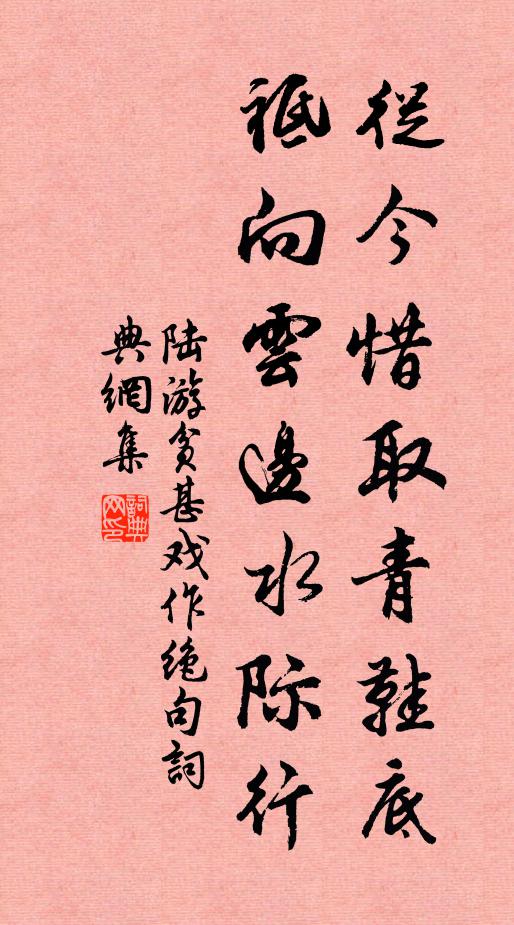 從今惜取青鞋底
祗向雲邊水际行
陆游貧甚戏作绝句詞
典網集
詞典网印